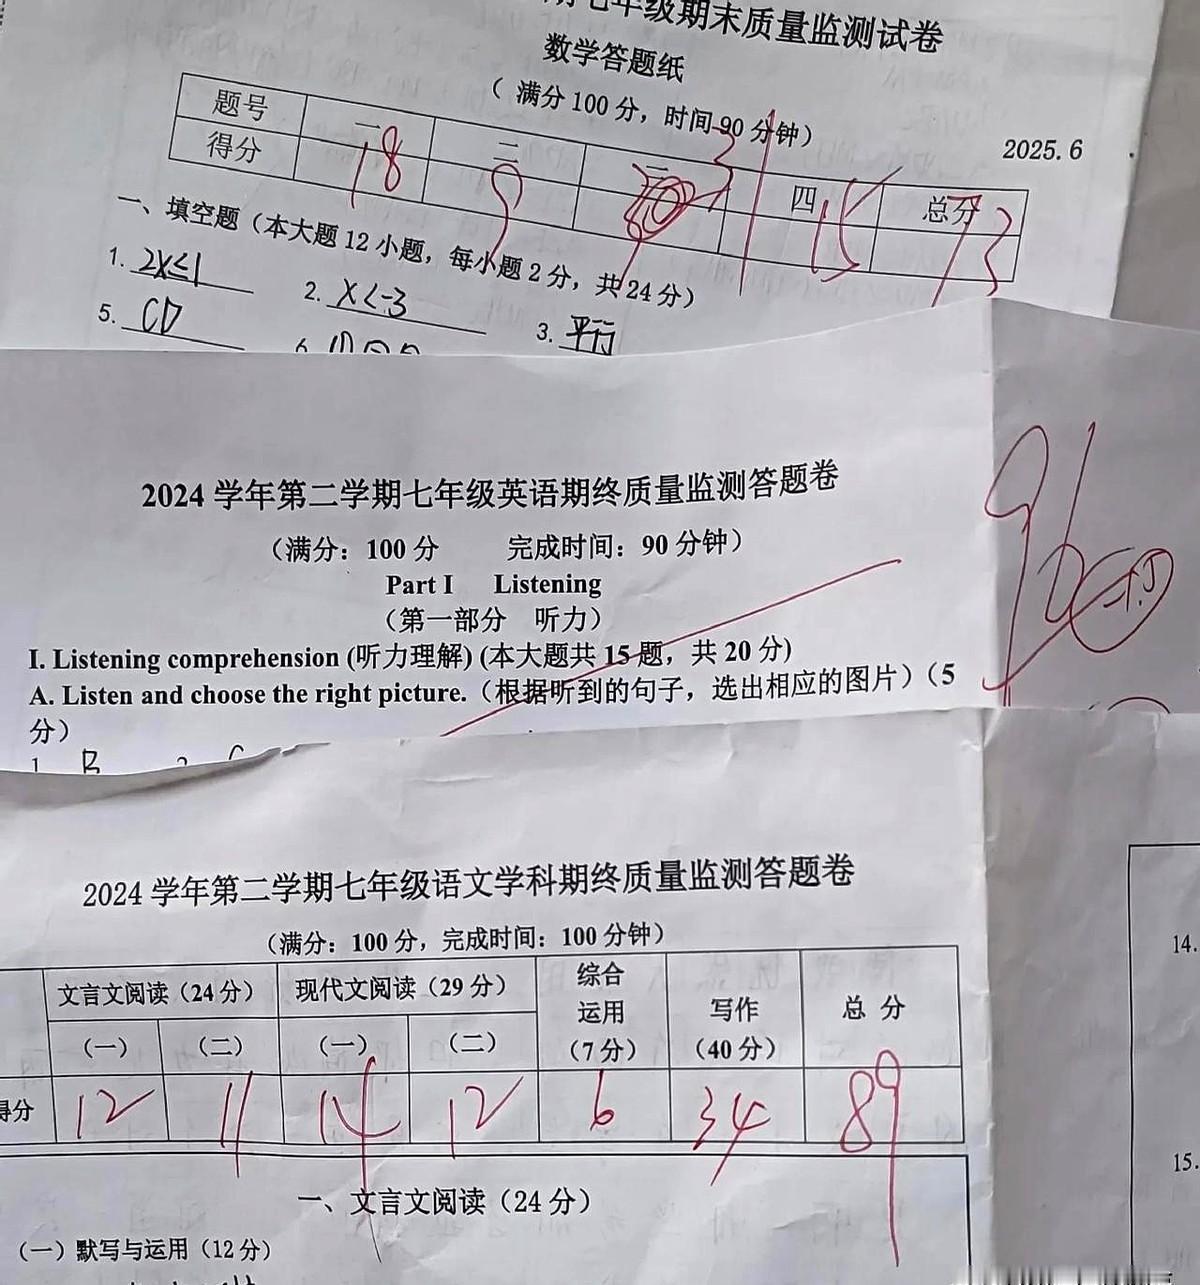 期七年级期末质量监测试卷
数学答题纸
（满分100分，时间90分钟）
2025.6
题号 一 二 三 四 总分
得分 18 9 31 15 73
一、填空题（本大题12小题，每小题2分，共24分）
1. 2x≤1 2. x<-3 3. 平行
5. CD 6.
2024学年第二学期七年级英语期终质量监测答题卷
（满分：100分 完成时间：90分钟）
96
-1.5
Part I Listening
（第一部分 听力）
I. Listening comprehension (听力理解) (本大题共15题，共20分)
A. Listen and choose the right picture.（根据听到的句子，选出相应的图片）（5
分）
1 B 2 C
2024学年第二学期七年级语文学科期终质量监测答题卷
（满分：100分，完成时间：100分钟）
文言文阅读（24分） 现代文阅读（29分） 综合运用（7分） 写作（40分） 总分
（一） （二） （一） （二）
得分 12 11 14 12 6 34 89
一、文言文阅读（24分）
（一）默写与运用（12分）
14.
15.